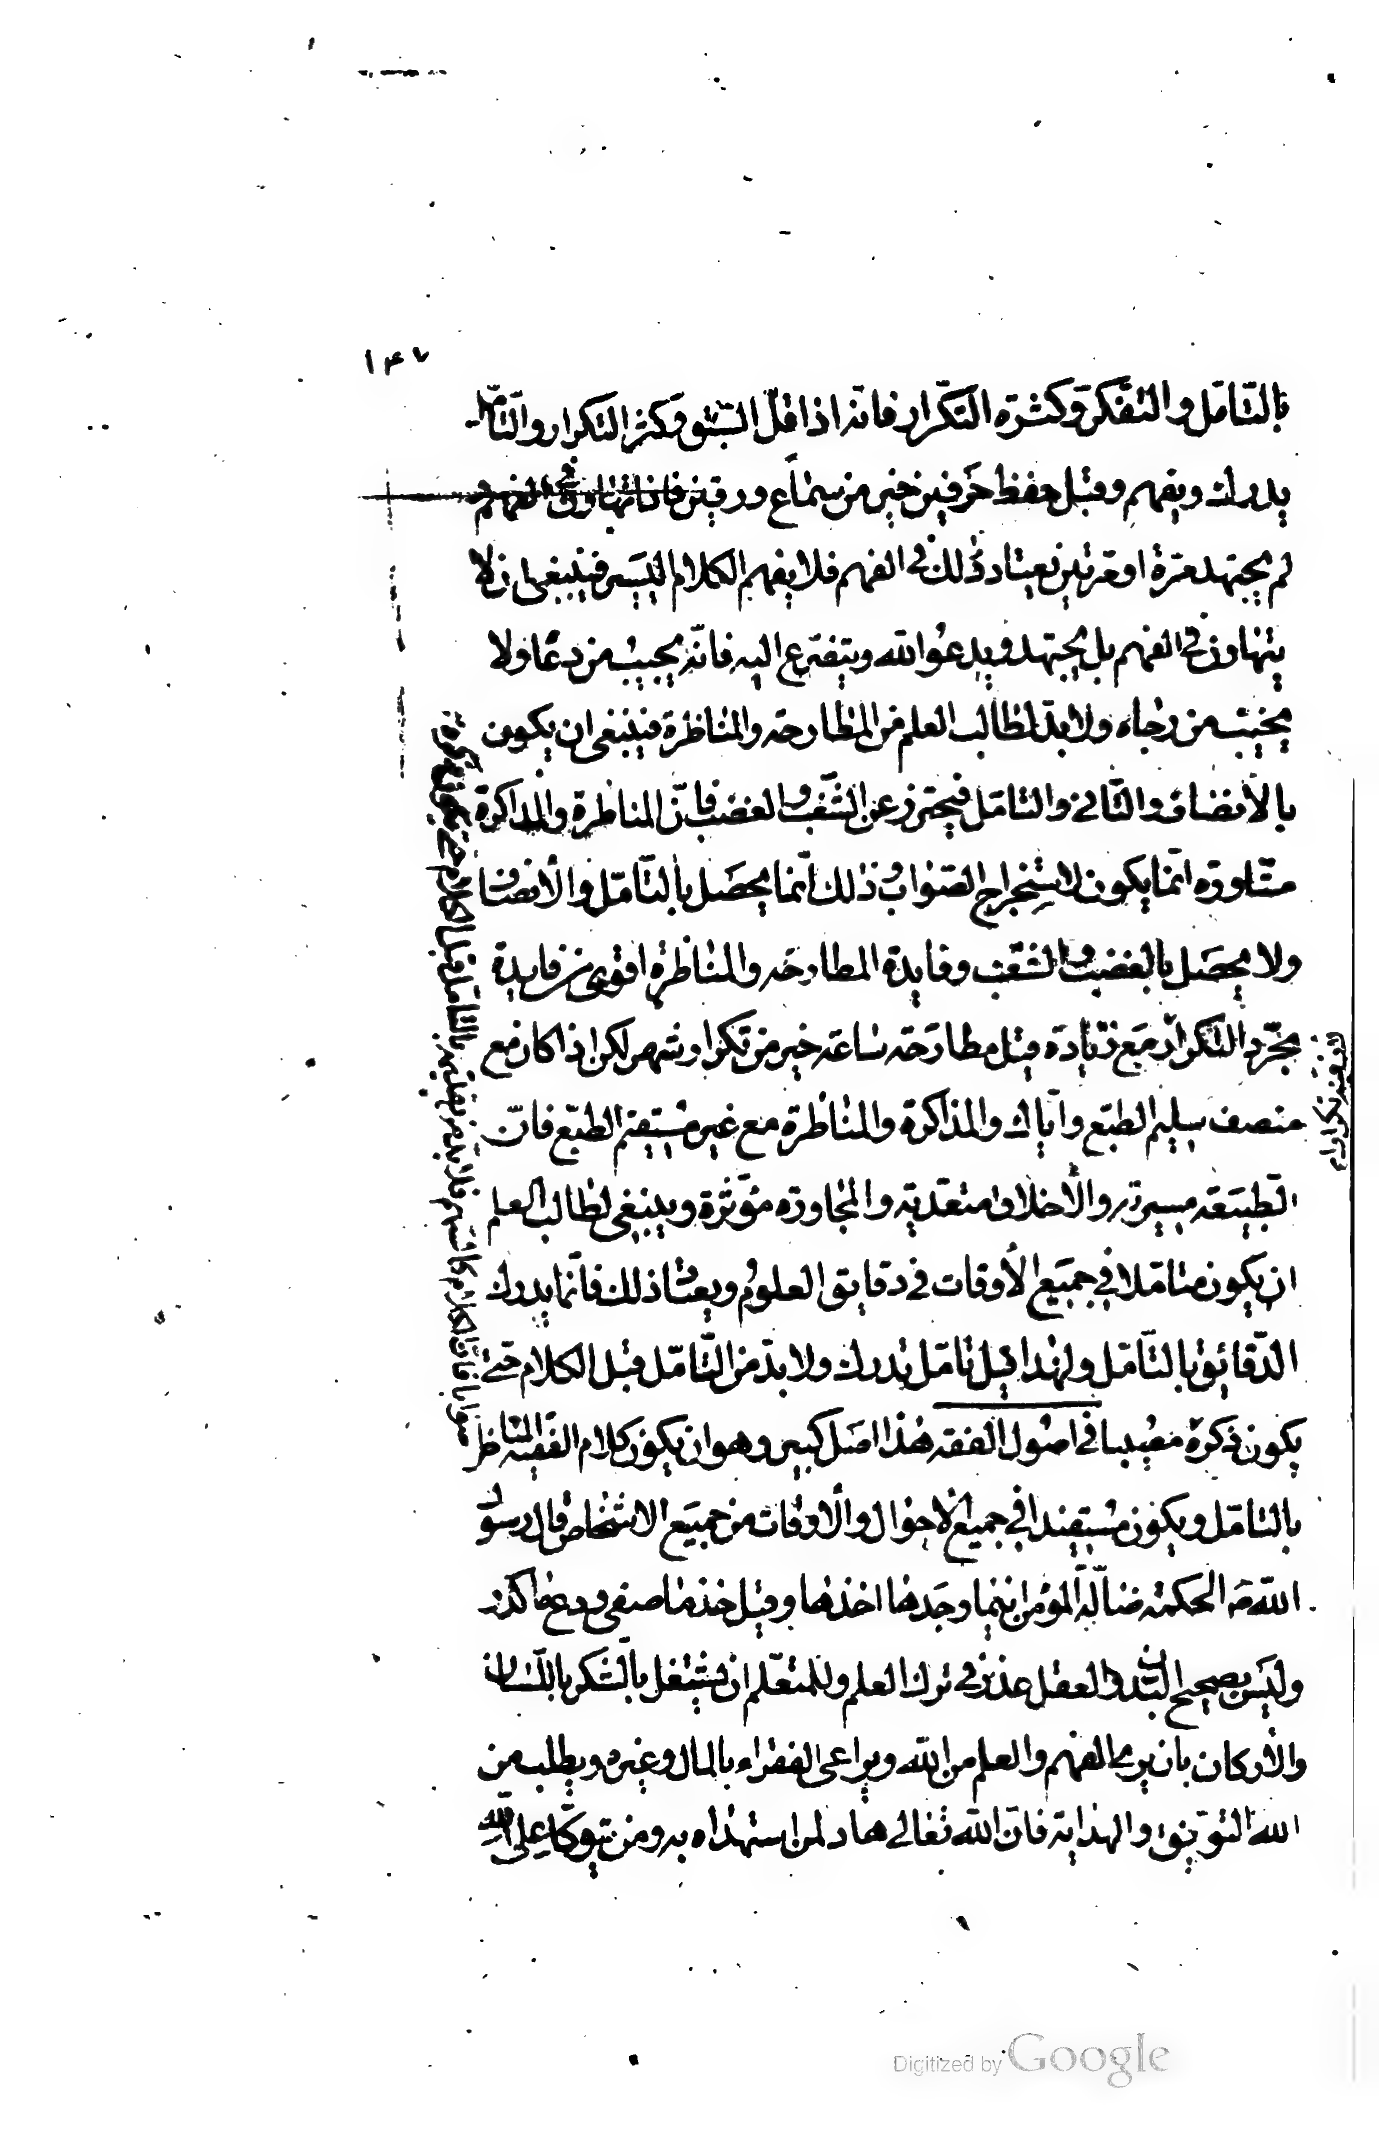 ١٤٧
بالتأمل والتفكر وكثرة التكرار فانه اذا قل السبق وكثر التكرار والتأمل
يدرك ويفهم وقيل حفظ حرفين خير من سماع ورقين فاذا تهاون في الفهم و
لم يجتهد مرة او مرتين يعتاد ذلك في الفهم فلا يفهم الكلام اليسير فينبغي ان لا
يتهاون في الفهم بل يجتهد ويدعو الله ويتضرع اليه فانه يجيب من دعا ولا
يخيب من رجاه ولا بد لطالب العلم من المطارحة والمناظرة فينبغي ان يكون
بالأنصاف والتأني والتامل فيحترز عن الشغب والغضب فان المناظرة والمذاكرة
مشاورة انما يكون لاستخراج الصواب وذلك انما يحصل بالتأمل والأنصاف
ولا يحصل بالغضب والشغب وفايدة المطارحة والمناظرة اقوى من فايدة
مجرد التكرار مع زيادة قيل مطارحة ساعة خير من تكرار شهر لكن اذا كان مع
منصف سليم الطبع واياك والمذاكرة والمناظرة مع غير مستقيم الطبع فان
الطبيعة مسرية والأخلاق متعدية والمجاورة مؤثرة وينبغي لطالب العلم
ان يكون متأملا في جميع الأوقات في دقايق العلوم ويعتاد ذلك فانما يدرك
الدقائق بالتأمل ولهذا قيل تأمل تدرك ولا بد من التأمل قبل الكلام حتى
يكون ذكره مفيدا في اصول الفقه هذا اصل كبير وهو ان يكون كلام الفقيه المناظر
بالتأمل ويكون مستفيدا في جميع الأحوال والأوقات من جميع الاشخاص قال رسول
الله ص الحكمة ضالة المؤمن اينما وجدها اخذها وقيل خذ ما صفى ودع ما كدر
وليس بصحيح البدن والعقل عذر في ترك العلم وللمتعلم ان يشتغل بالشكر باللسان
والأركان بان يرى الفهم والعلم من الله ويراعي الفقراء بالمال وغيره ويطلب من
الله التوفيق والهداية فان الله تعالى هاد لمن استهداه به ومن يتوكل على الله
صوابا فان الكلام كالسهم فلا بد من تقديمه بالتأمل قبل الكلام حتى يكون ذكره
Digitized by Google